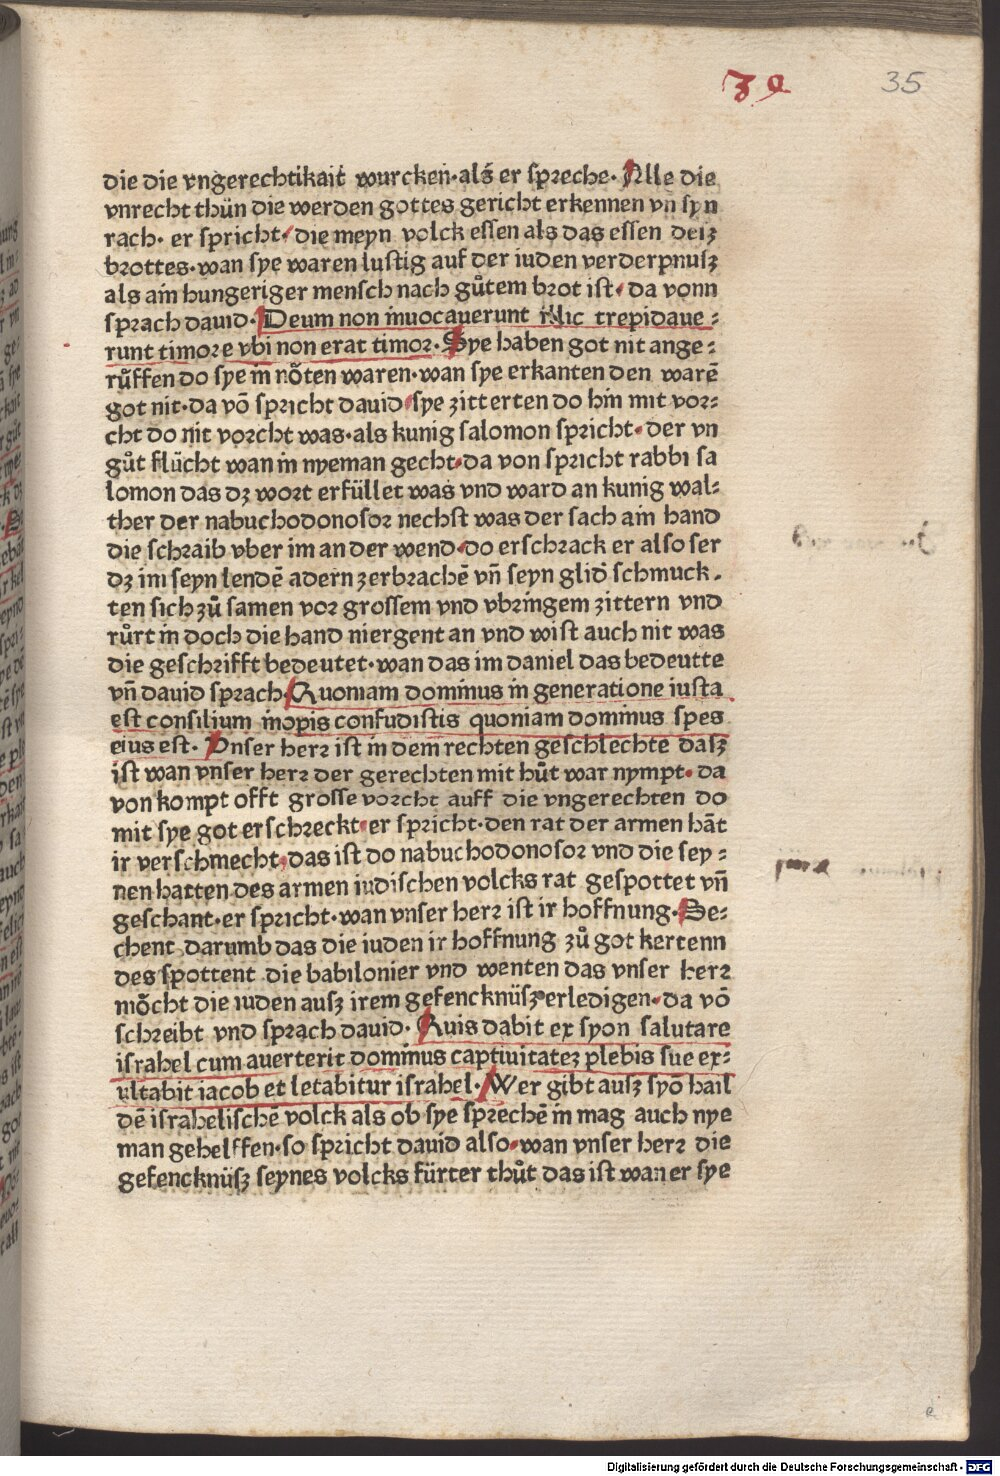 39 35
die die vngerechtikait wurcken·als er spreche· Alle die
vnrecht thün die werden gottes gericht erkennen vñ syn
rach· er spricht· die meyn volck essen als das essen deiz
brottes·wan sye waren lustig auf der iuden verderpnusz
als ain hungeriger mensch nach gůtem brot ist· da vonn
sprach dauid· Deum non inuocauerunt illic trepidaue:
runt timore vbi non erat timor· Sye haben got nit ange:
růffen do sye in nöten waren·wan sye erkanten den warē
got nit·da vō spricht dauid·sye zitterten do hin mit vor:
cht do nit vorcht was·als kunig salomon spricht·der vn
gůt flücht wan in nyeman gecht·da von spricht rabbi sa
lomon das dz wort erfüllet was vnd ward an kunig wal:
ther der nabuchodonosor nechst was der sach ain hand
die schraib vber im an der wend·do erschrack er also ser
dz im seyn lendē adern zerbrachē vñ seyn glid schmuck·
ten sich zů samen vor grossem vnd vbringem zittern vnd
růrt in doch die hand niergent an vnd wist auch nit was
die geschrifft bedeutet·wan das im daniel das bedeutte
vñ dauid sprach· Quoniam dominus in generatione iusta
est consilium inopis confudistis quoniam dominus spes
eius est· Vnser herz ist in dem rechten geschlechte dasz
ist wan vnser herz der gerechten mit hůt war nympt·da
von kompt offt grosse vorcht auff die vngerechten do
mit sye got erschreckt·er spricht·den rat der armen hāt
ir verschmecht·das ist do nabuchodonosor vnd die sey:
nen hatten des armen iudischen volcks rat gespottet vñ
geschant·er spricht·wan vnser herz ist ir hoffnung·Se:
chent darumb das die iuden ir hoffnung zů got kertenn
des spottent die babilonier vnd wenten das vnser herz
möcht die iuden ausz irem gefencknüsz erledigen·da vō
schreibt vnd sprach dauid· Quis dabit ex syon salutare
israhel cum auerterit dominus captiuitatez plebis sue ex:
ultabit iacob et letabitur israhel· Wer gibt ausz syō hail
dē israhelischē volck als ob sye sprechē in mag auch nye
man gehelffen·so spricht dauid also·wan vnser herz die
gefencknüsz seynes volcks fürter thůt das ist wan er sye
Digitalisierung gefördert durch die Deutsche Forschungsgemeinschaft - DFG